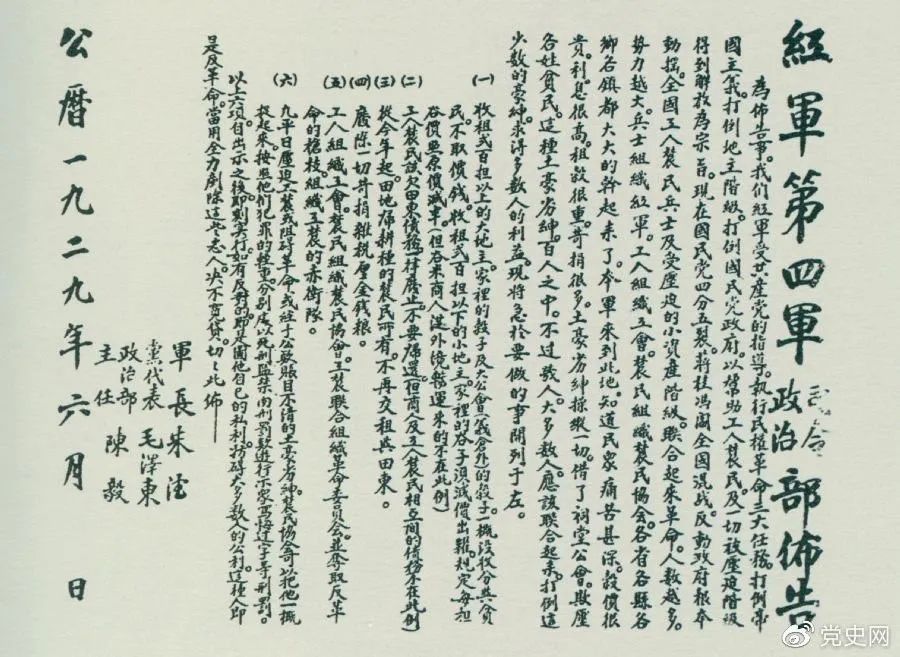 紅軍第四軍司令政治部佈告
為佈告事。我們紅軍受共產黨的指導。執行民權革命三大任務。打倒帝
國主義。打倒地主階級。打倒國民黨政府。以幫助工人農民及一切被壓迫階級
得到解放為宗旨。現在國民黨四分五裂。蔣桂馮閻全國混战。反動政府根本
動搖。全國工人農民兵士及受壓迫的小資產階級。聯合起來革命。人數越多。
勢力越大。兵士組織紅軍。工人組織工會。農民組織農民協會。各省各縣各
鄉各鎮都大大的幹起來了。本軍來到此地。知道民眾痛苦甚深。穀價很
貴。利息很高。租穀很重。苛捐很多。土豪劣紳操縱一切。借了祠堂公會。欺壓
各姓貧民。這種土豪劣紳。百人之中。不过數人。大多數人。應該联合起來。打倒這
少数的豪紳。求得多数人的利益。現將急於要做的事開列于左。
(一) 收租弍百担以上的大地主。家裡的穀子及大公會(義倉外)的穀子。一概沒收分與貧
民。不取價钱。收租弍百担以下的小地主。家裡的谷子。須減價出糶。規定每担
谷價照原價減半。(但谷米商人從外境輸運来的不在此例)
(二) 工人農民該欠田東債務。一律廢止。不要歸還。(但商人及工人農民相互間的債務不在此例)
(三) 從今年起。田地歸耕種的農民所有。不再交租與田東。
(四) 廢除一切苛捐雜税厘金錢粮。
(五) 工人組織工會。農民組織農民協會。工農联合組織革命委員會。並奪取反革
命的槍枝組織工農的赤衛隊。
(六) 凡平日壓迫工農或阻碍革命。或經手公款賬目不清的土豪劣紳。農民協會可以把他一概
捉起來。按照他们犯罪的輕重。分别處以死刑監禁肉刑罰款遊行示家写悔过字等刑罰。
以上六項。自出示之後。即刻实行。如有反對的。即是圖他自己的私利。妨碍大多數人的公利。這種人即
是反革命。當用全力剷除這些忘人。决不寬貸。切切此佈
軍長 朱德
黨代表 毛澤東
政治部主任 陳毅
公曆一九二九年六月 日
党史网